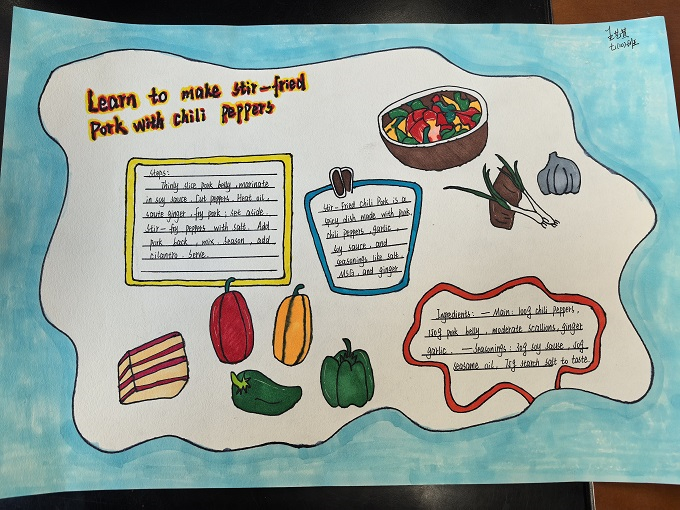 Learn to make stir-fried
Pork with chili peppers
Steps:
Thinly slice pork belly, marinate
in soy sauce. Cut peppers. Heat oil,
saute ginger, fry pork; set aside.
Stir-fry peppers with salt. Add
pork back, mix, season, add
cilantro. Serve.
Stir-Fried Chili Pork is a
spicy dish made with pork,
chili peppers, garlic,
soy sauce, and
seasonings like salt,
MSG, and ginger
Ingredients: — Main: 100g chili peppers,
150g pork belly, moderate scallions, ginger
garlic. — Seasonings: 30g soy sause, 50g
seasame oil, 75g starch salt to taste